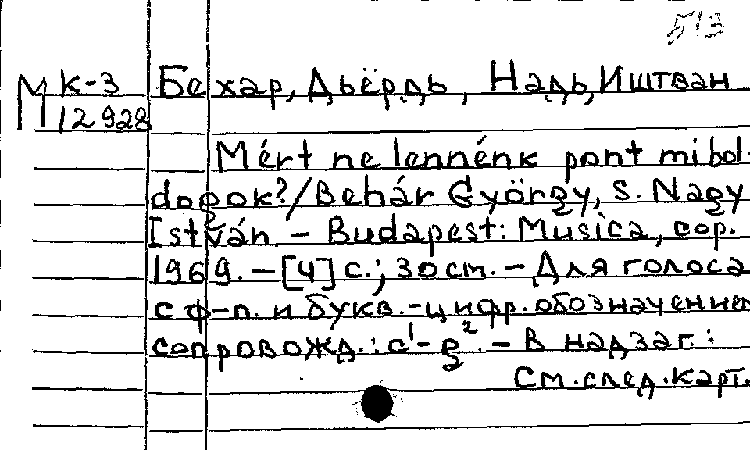 513
М К-3 Бехар, Дьёрдь, Надь, Иштван
12928
Mért ne lennénk pont mi bol-
dogok?/Behár György, S. Nagy
István - Budapest: Musica, cop.
1969. - [4] с.; 30 см. - Для голоса
с ф-п. и букв.-цифр. обозначением
сопровожд.: c¹-g². - В надзаг.:
См. след. карт.